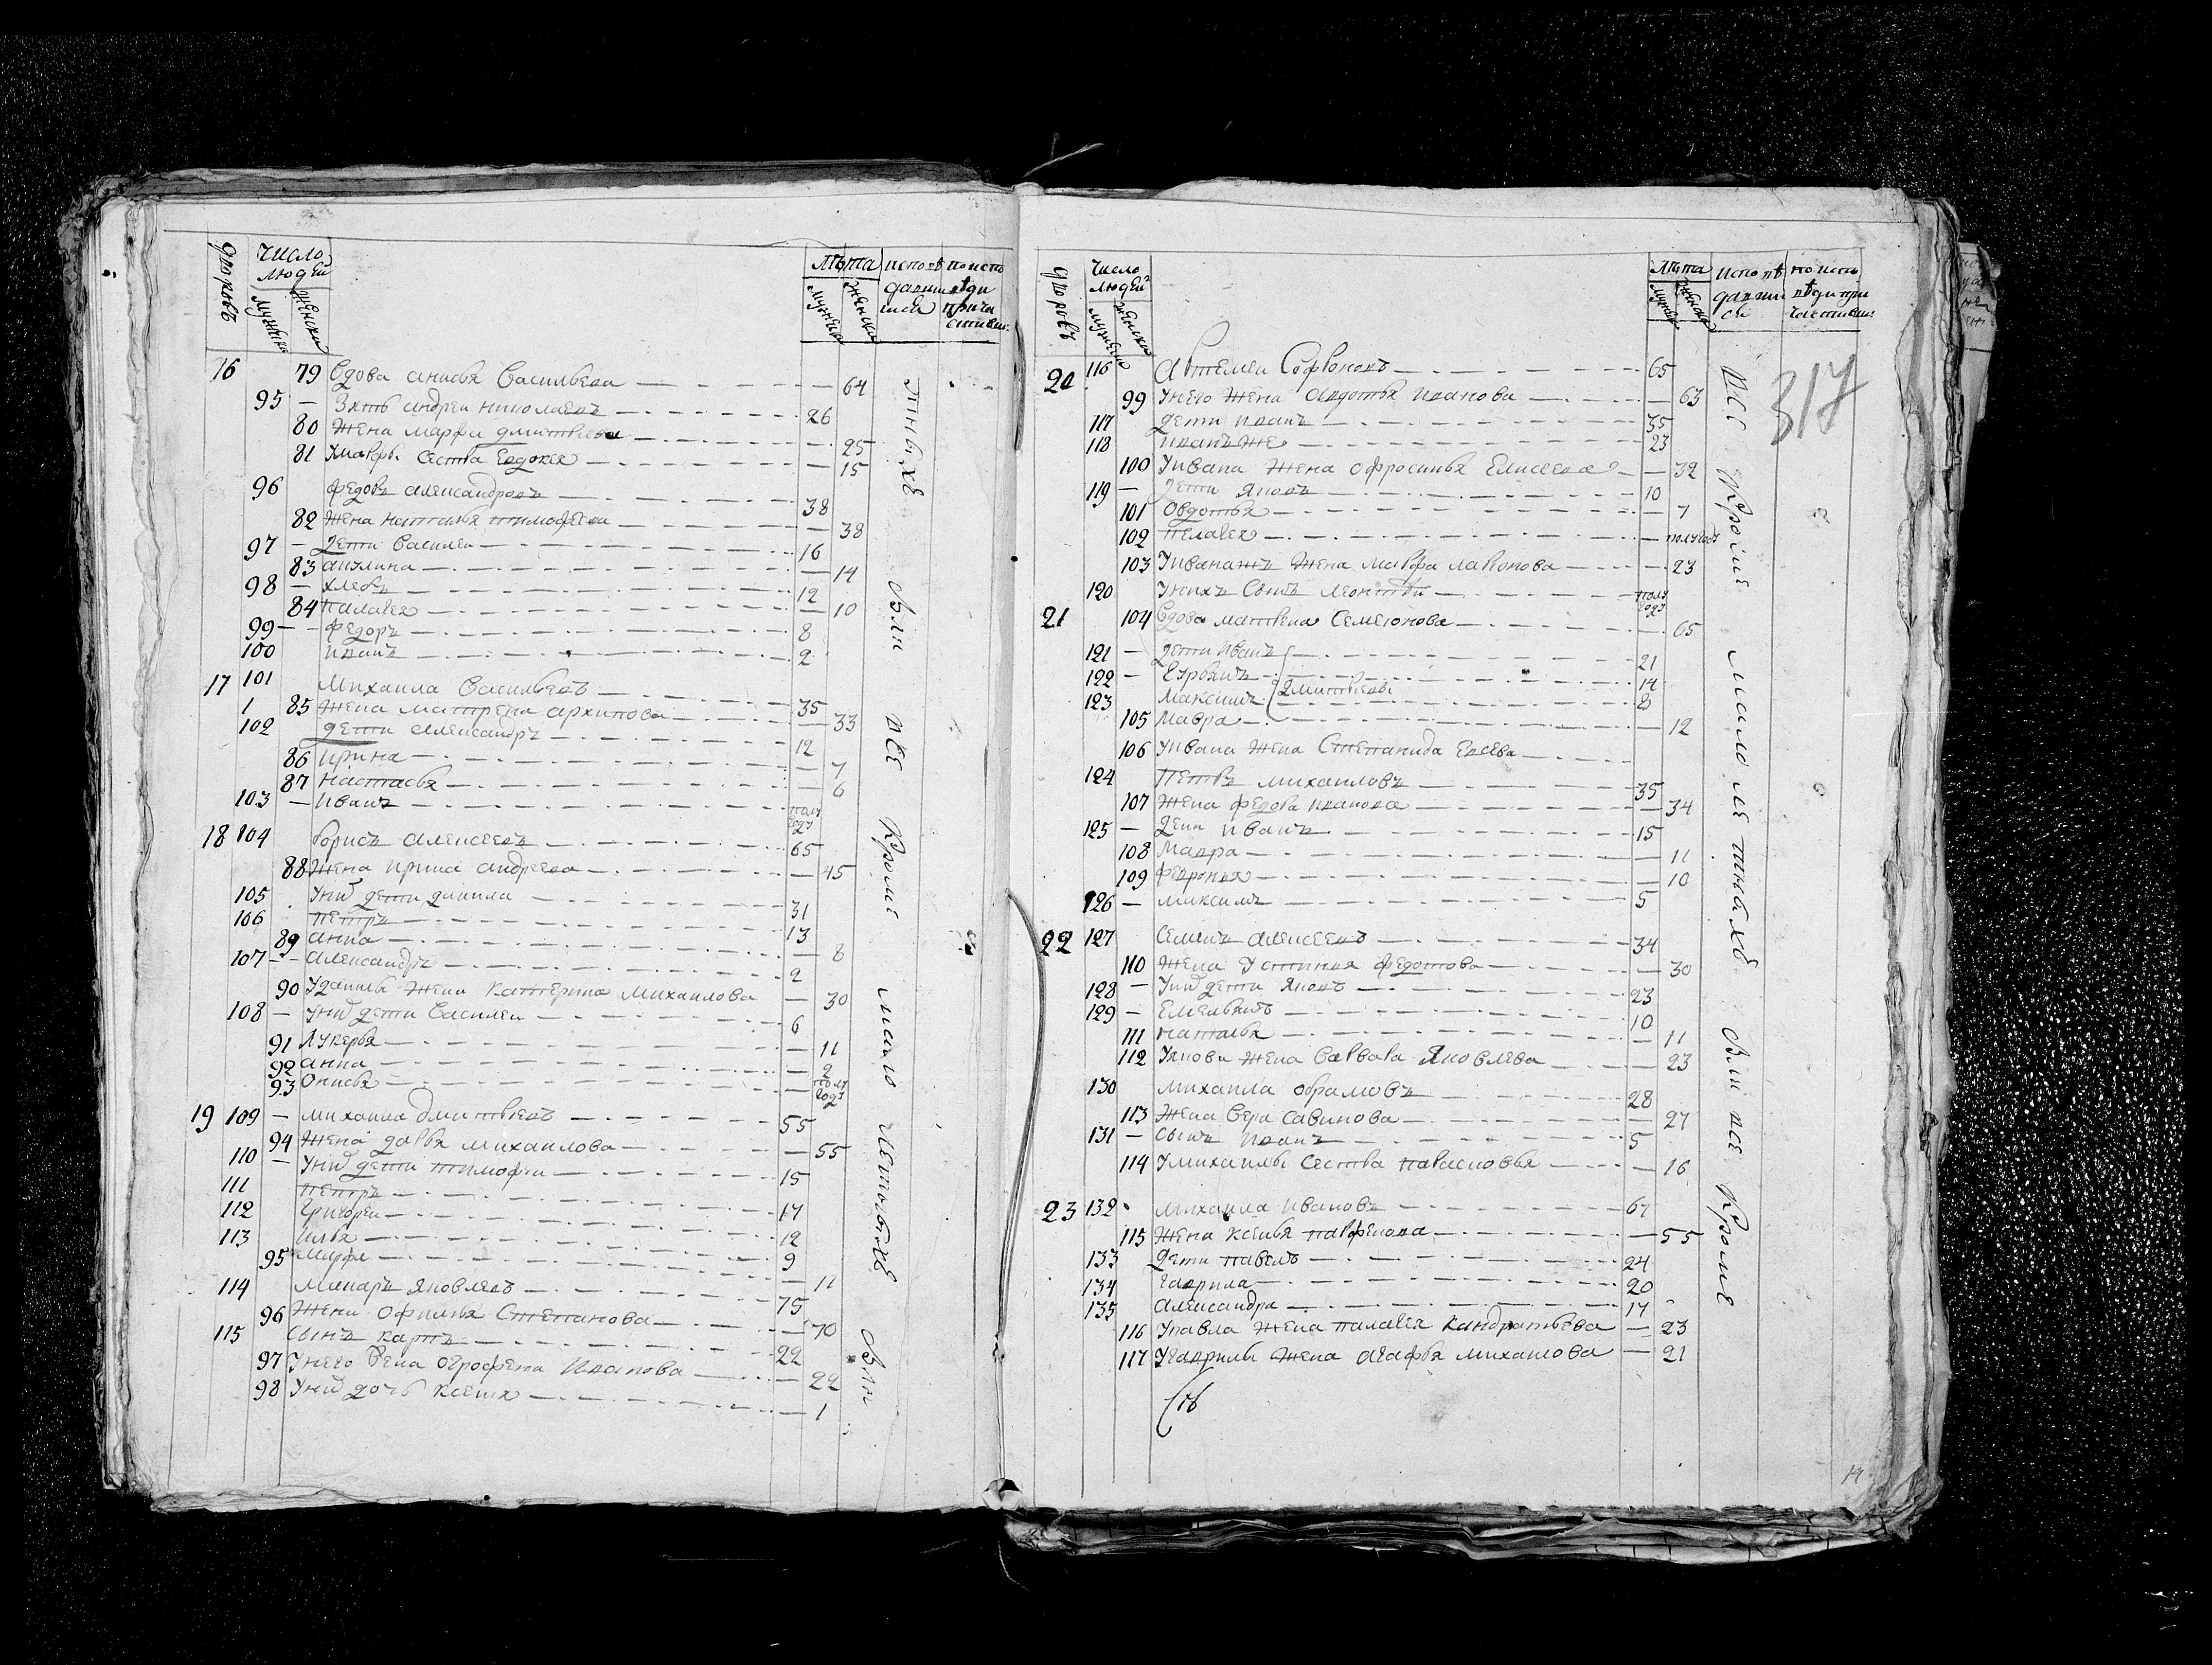 дворовъ число людей лѣта исповѣдавшиися по исповѣди причастивш:
мужеска женска мужеска женска
16 79 Вдова анисья Васильева 64
95 Зять андреи николаевъ 26
80 Жена марфа дмитвиева 25
81 Умарфы сестра Евдокея 15
96 Федоръ александровъ 38
82 Жена наталья тимофеева 38
97 дети Василеи 16
83 акулина 14
98 12
84 палагея 10
99 Федоръ 8
100 иванъ 2
17 101 Михаила Васильевъ 35
1 85 Жена матрена архипова 33
102 дети александръ 12
86 ирина 7
87 настасья 6
103 иванъ полугоду
18 104 борисъ алексеевъ 65
88 Жена ирина андреева 45
105 Уних дети данила 31
106 петръ 13
89 анна 8
107 александръ 2
90 Уданилы Жена катерина михаилова 30
108 Уних дети Василеи 6
91 лукерья 11
92 анна 2
93 Онисья полугоду
19 109 михаила дмитвиевъ 55
94 Жена дарья михаилова 55
110 Уних дети тимофеи 15
111 петръ 14
112 григореи 12
113 илья 9
95 марфа 11
114 макаръ яковлевъ 75
96 Жена офимья Степанова 70
115 Сынъ карпъ 22
97 Унего Жена огрофена иванова 22
98 Уних дочь ксенья 1
Были все кроме мало летныхъ
Были
дворовъ число людей лѣта исповѣдавшиися по исповѣди причастивш:
мужеска женска мужеска женска
317
20 116 Артемеи Софроновъ 65
99 Унего Жена авдотья иванова 63
117 дети иванъ 35
118 иванъ же 23
100 Уивана Жена офросинья Елисеева 32
119 дети яковъ 10
101 Овдотья 7
102 пелагея полугоду
103 Уивана жъ Жена мавра ларионова 23
120 Унихъ Сынъ леонтеи полугоду
21 104 Вдова матрена Семеонова 65
121 дети иванъ 21
122 14
123 максимъ дмитвиевы 8
105 мавра 12
106 Уивана Жена Степанида Евсева
124 Петръ михаиловъ 35
107 Жена федора иванова 34
125 дети иванъ 15
108 мавра 11
109 февронья 10
126 максимъ 5
22 127 Семенъ алексеевъ 34
110 Жена устинья федотова 30
128 Уних дети яковъ 23
129 Емельянъ 10
111 наталья 11
112 Уякова Жена Варвара яковлева 23
130 михаила обрамовъ 28
113 Жена Вера Савинова 27
131 сынъ иванъ 5
114 Умихаилы сестра парасковья 16
23 132 михаила ивановъ 67
115 Жена ксенья парфенова 55
133 дети павелъ 24
134 гаврила 20
135 александра 17
116 Упавла Жена палагея кандратьева 23
117 Угаврилы Жена агафья михаилова 21
все кроме мало летныхъ Были все кроме
14